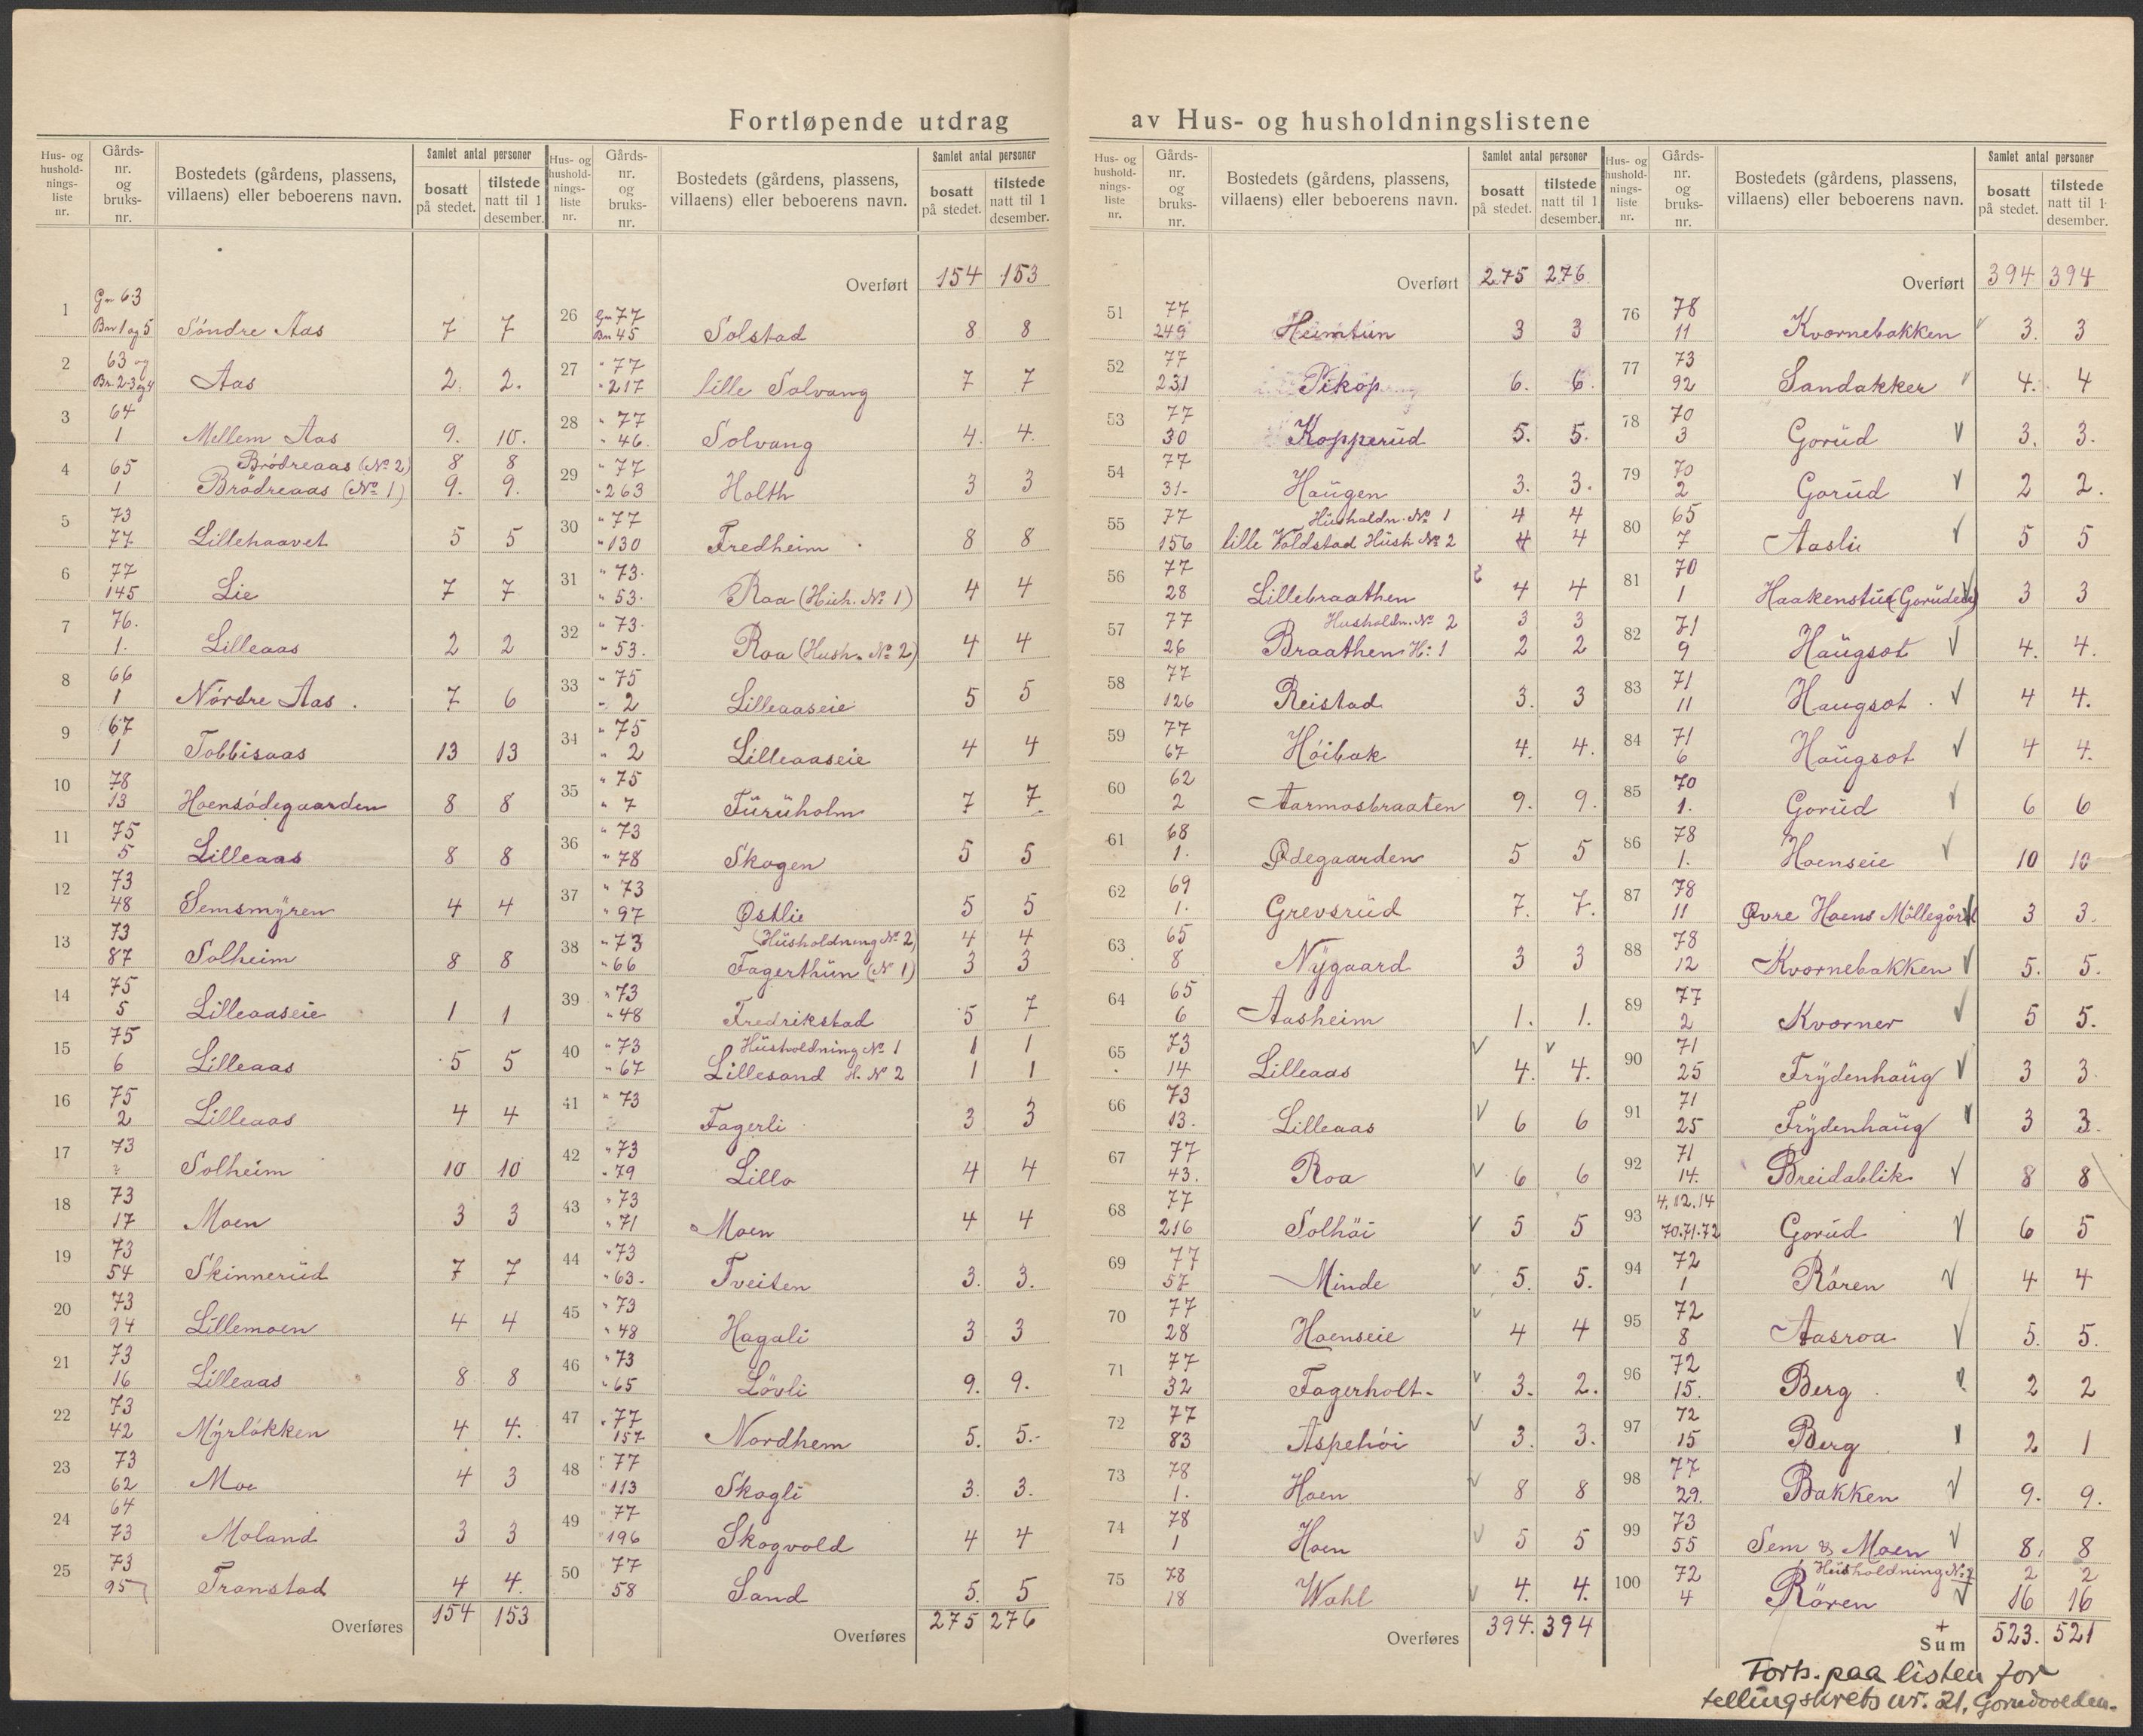 Fortløpende utdrag av Hus- og husholdningslistene
Hus- og husholdnings-liste nr. Gårds-nr. og bruks-nr. Bostedets (gårdens, plassens, villaens) eller beboerens navn. Samlet antal personer bosatt på stedet. tilstede natt til 1 desember.
1 Gn 63 Bn 1 og 5 Söndre Aas 7 7
2 63 og Bn. 2-3 og 4 Aas 2. 2.
3 64 1 Mellem Aas 9. 10.
Brödreaas (No 2) 8 8
4 65 1 Brödreaas (No 1) 9. 9.
5 73 77 Lillehaavet 5 5
6 77 145 Lie 7 7
7 76. 1. Lilleaas 2 2
8 66 1 Nördre Aas. 7 6
9 67 1 Tobbisaas 13 13
10 78 13 Hoensödegaarden 8 8
11 75 5 Lilleaas 8 8
12 73 48 Semsmyren 4 4
13 73 87 Solheim 8 8
14 75 5 Lilleaaseie 1 1
15 75 6 Lilleaas 5 5
16 75 2 Lilleaas 4 4
17 73 Solheim 10 10
18 73 17 Moen 3 3
19 73 54 Skinnerüd 7 7
20 73 94 Lillemoen 4 4
21 73 16 Lilleaas 8 8
22 73 42 Myrlökken 4 4.
23 73 62 Moe 4 3
24 64 73 Moland 3 3
25 73 95 Transtad 4 4.
Overføres 154 153
Hus- og husholdnings-liste nr. Gårds-nr. og bruks-nr. Bostedets (gårdens, plassens, villaens) eller beboerens navn. Samlet antal personer bosatt på stedet. tilstede natt til 1 desember.
Overført 154 153
26 Gn 77 Bn 45 Solstad 8 8
27 " 77 " 217 lille Solvang 7 7
28 " 77 " 46. Solvang 4. 4.
29 " 77 " 263 Holth 3 3
30 " 77 " 130 Fredheim 8 8
31 " 73. " 53. Roa (Hüsh. No 1) 4 4
32 " 73. " 53. Roa (Hush. No 2) 4 4
33 " 75 " 2 Lilleaaseie 5 5
34 " 75 " 2 Lilleaaseie 4 4
35 " 75 " 7 Fürüholm 7 7.
36 " 73 " 78 Skogen 5 5
37 " 73 " 97 Østlie 5 5
(Hüsholdning No 2) 4 4
38 " 73 " 66 Fagerthün (No 1) 3 3
39 " 73 " 48 Fredrikstad 5 7
Hüsholdning No 1 1 1
40 " 73 " 67 Lillesand H. No 2 1 1
41 " 73 Fagerli 3 3
42 " 73 " 79 Lillo 4 4
43 " 73 " 71 Moen 4 4
44 " 73 " 63. Tveiten 3. 3.
45 " 73 " 48 Hagali 3 3
46 " 73 " 65 Lövli 9. 9.
47 " 77 157 Nordhem 5. 5.-
48 " 77 " 113 Skogli 3. 3.
49 " 77 " 196 Skogvold 4 4
50 " 77 58 Sand 5. 5
Overføres 275 276
Hus- og husholdnings-liste nr. Gårds-nr. og bruks-nr. Bostedets (gårdens, plassens, villaens) eller beboerens navn. Samlet antal personer bosatt på stedet. tilstede natt til 1 desember.
Overført 275 276
51 77 249 Heimtün 3 3
52 77 231 Pikop 6. 6.
53 77 30 Kopperüd 5. 5.
54 77 31- Haügen 3. 3.
Hüsholdn. No 1 4 4
55 77 156 lille Voldstad Hüsh No 2 4 4
56 77 28 Lillebraathen 4 4
Husholdn. No 2 3 3
57 77 26 Braathen H: 1 2 2
58 77 126 Reistad 3. 3
59 77 67 Höibak 4. 4.
60 62 2 Aarmosbraaten 9. 9.
61 68 1. Ødegaarden 5 5
62 69 1. Grevsrüd 7. 7.
63 65 8 Nygaard 3 3
64 65 6 Aasheim 1. 1.
65 73 14 Lilleaas 4. 4.
66 73 13. Lilleaas 6 6
67 77 43. Roa 6 6
68 77 216 Solhöi 5 5
69 77 57 Minde 5. 5.
70 77 28 Hoenseie 4 4
71 77 32 Fagerholt- 3. 2.
72 77 83 Aspehöi 3. 3.
73 78 1. Hoen 8 8
74 78 1 Hoen 5 5
75 78 18 Wahl 4. 4.
Overføres 394. 394
Hus- og husholdnings-liste nr. Gårds-nr. og bruks-nr. Bostedets (gårdens, plassens, villaens) eller beboerens navn. Samlet antal personer bosatt på stedet. tilstede natt til 1 desember.
Overført 394 394
76 78 11 Kvornebakken 3. 3
77 73 92 Sandakker 4. 4
78 70 3 Gorüd 3. 3.
79 70 2 Gorüd 2 2.
80 65 7 Aaslie 5 5
81 70 1 3 3
82 71 9 Haügsot 4. 4.
83 71 11 Haugsot 4 4.
84 71 6 Haügsot 4 4.
85 70 1. Gorüd 6 6
86 78 1. Hoenseie 10 10
87 78 11 Øvre Hoens Möllegård 3 3.
88 78 12 Kvornebakken 5. 5.
89 77 2 Kvorner 5 5.
90 71 25 Frydenhaüg 3 3.
91 71 25 Frydenhaüg 3 3.
92 71 14. Breidablik 8 8
93 4,12.14 70.71.72 Gorüd 6 5
94 72 1 Rören 4 4
95 72 8 Aasroa 5. 5.
96 72 15. Berg 2 2
97 72 15 Berg 2 1
98 77 29. Bakken 9. 9.
99 73 55 Sem & Moen 8. 8
Hüsholdning No 2 2 2
100 72 4 Rören 16 16
Sum 523. 521
Forts. paa listen for
tellingskrets nr. 21, Gorudvolden.